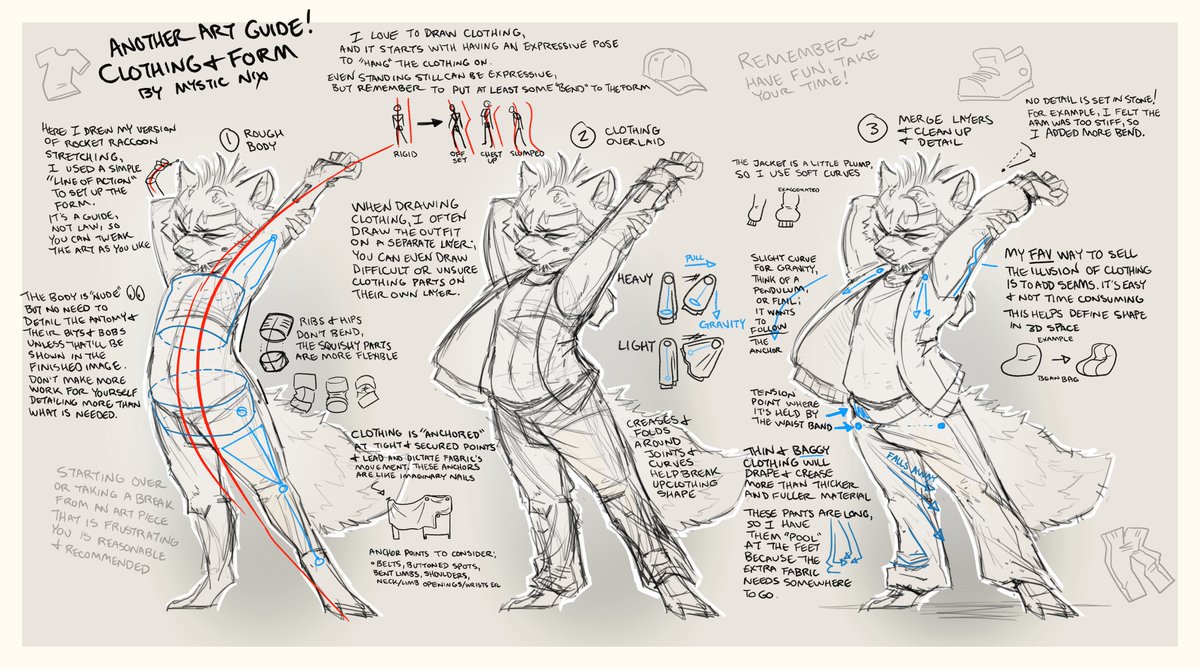 ANOTHER ART GUIDE!
CLOTHING & FORM
BY MYSTIC NIX
I LOVE TO DRAW CLOTHING,
AND IT STARTS WITH HAVING AN EXPRESSIVE POSE
TO "HANG" THE CLOTHING ON.
EVEN STANDING STILL CAN BE EXPRESSIVE,
BUT REMEMBER TO PUT AT LEAST SOME "BEND" TO THE FORM
RIGID
OFF
SET
CHEST
UP
SLUMPED
REMEMBER~
HAVE FUN, TAKE
YOUR TIME!
HERE I DREW MY VERSION
OF ROCKET RACCOON
STRETCHING,
I USED A SIMPLE
"LINE OF ACTION"
TO SET UP THE
FORM.
IT'S A GUIDE,
NOT LAW, SO
YOU CAN TWEAK
THE ART AS YOU LIKE
1 ROUGH
BODY
THE BODY IS "NUDE"
BUT NO NEED TO
DETAIL THE ANTOMY &
THEIR BITS & BOBS
UNLESS THAT'LL BE
SHOWN IN THE
FINISHED IMAGE.
DON'T MAKE MORE
WORK FOR YOURSELF
DETAILING MORE THAN
WHAT IS NEEDED.
RIBS & HIPS
DON'T BEND,
THE SQUISHY PARTS
ARE MORE FLEXIBLE
STARTING OVER
OR TAKING A BREAK
FROM AN ART PIECE
THAT IS FRUSTRATING
YOU IS REASONABLE
& RECOMMENDED
2 CLOTHING
OVERLAID
WHEN DRAWING
CLOTHING, I OFTEN
DRAW THE OUTFIT
ON A SEPARATE LAYER,
YOU CAN EVEN DRAW
DIFFICULT OR UNSURE
CLOTHING PARTS ON
THEIR OWN LAYER.
CLOTHING IS "ANCHORED"
AT TIGHT & SECURED POINTS
& LEAD AND DICTATE FABRIC'S
MOVEMENT. THESE ANCHORS
ARE LIKE IMAGINARY NAILS
ANCHOR POINTS TO CONSIDER;
• BELTS, BUTTONED SPOTS,
BENT LIMBS, SHOULDERS,
NECK/LIMB OPENINGS/WRISTS ETC
HEAVY
PULL
GRAVITY
LIGHT
CREASES &
FOLDS
AROUND
JOINTS &
CURVES
HELP BREAK
UP CLOTHING
SHAPE
3 MERGE LAYERS
& CLEAN UP
DETAIL
NO DETAIL IS SET IN STONE!
FOR EXAMPLE, I FELT THE
ARM WAS TOO STIFF, SO
I ADDED MORE BEND.
THE JACKET IS A LITTLE PLUMP,
SO I USE SOFT CURVES
EXAGGERATED
SLIGHT CURVE
FOR GRAVITY,
THINK OF A
PENDULUM,
OR FLAIL;
IT WANTS
TO
FOLLOW
THE
ANCHOR
MY FAV WAY TO SELL
THE ILLUSION OF CLOTHING
IS TO ADD SEAMS. IT'S EASY
& NOT TIME CONSUMING
THIS HELPS DEFINE SHAPE
IN 3D SPACE
EXAMPLE
BEAN BAG
TENSION
POINT WHERE
IT'S HELD BY
THE WAIST BAND
FALLS AWAY
THIN & BAGGY
CLOTHING WILL
DRAPE & CREASE
MORE THAN THICKER
AND FULLER MATERIAL
THESE PANTS ARE LONG,
SO I HAVE
THEM "POOL"
AT THE FEET
BECAUSE THE
EXTRA FABRIC
NEEDS SOMEWHERE
TO GO.